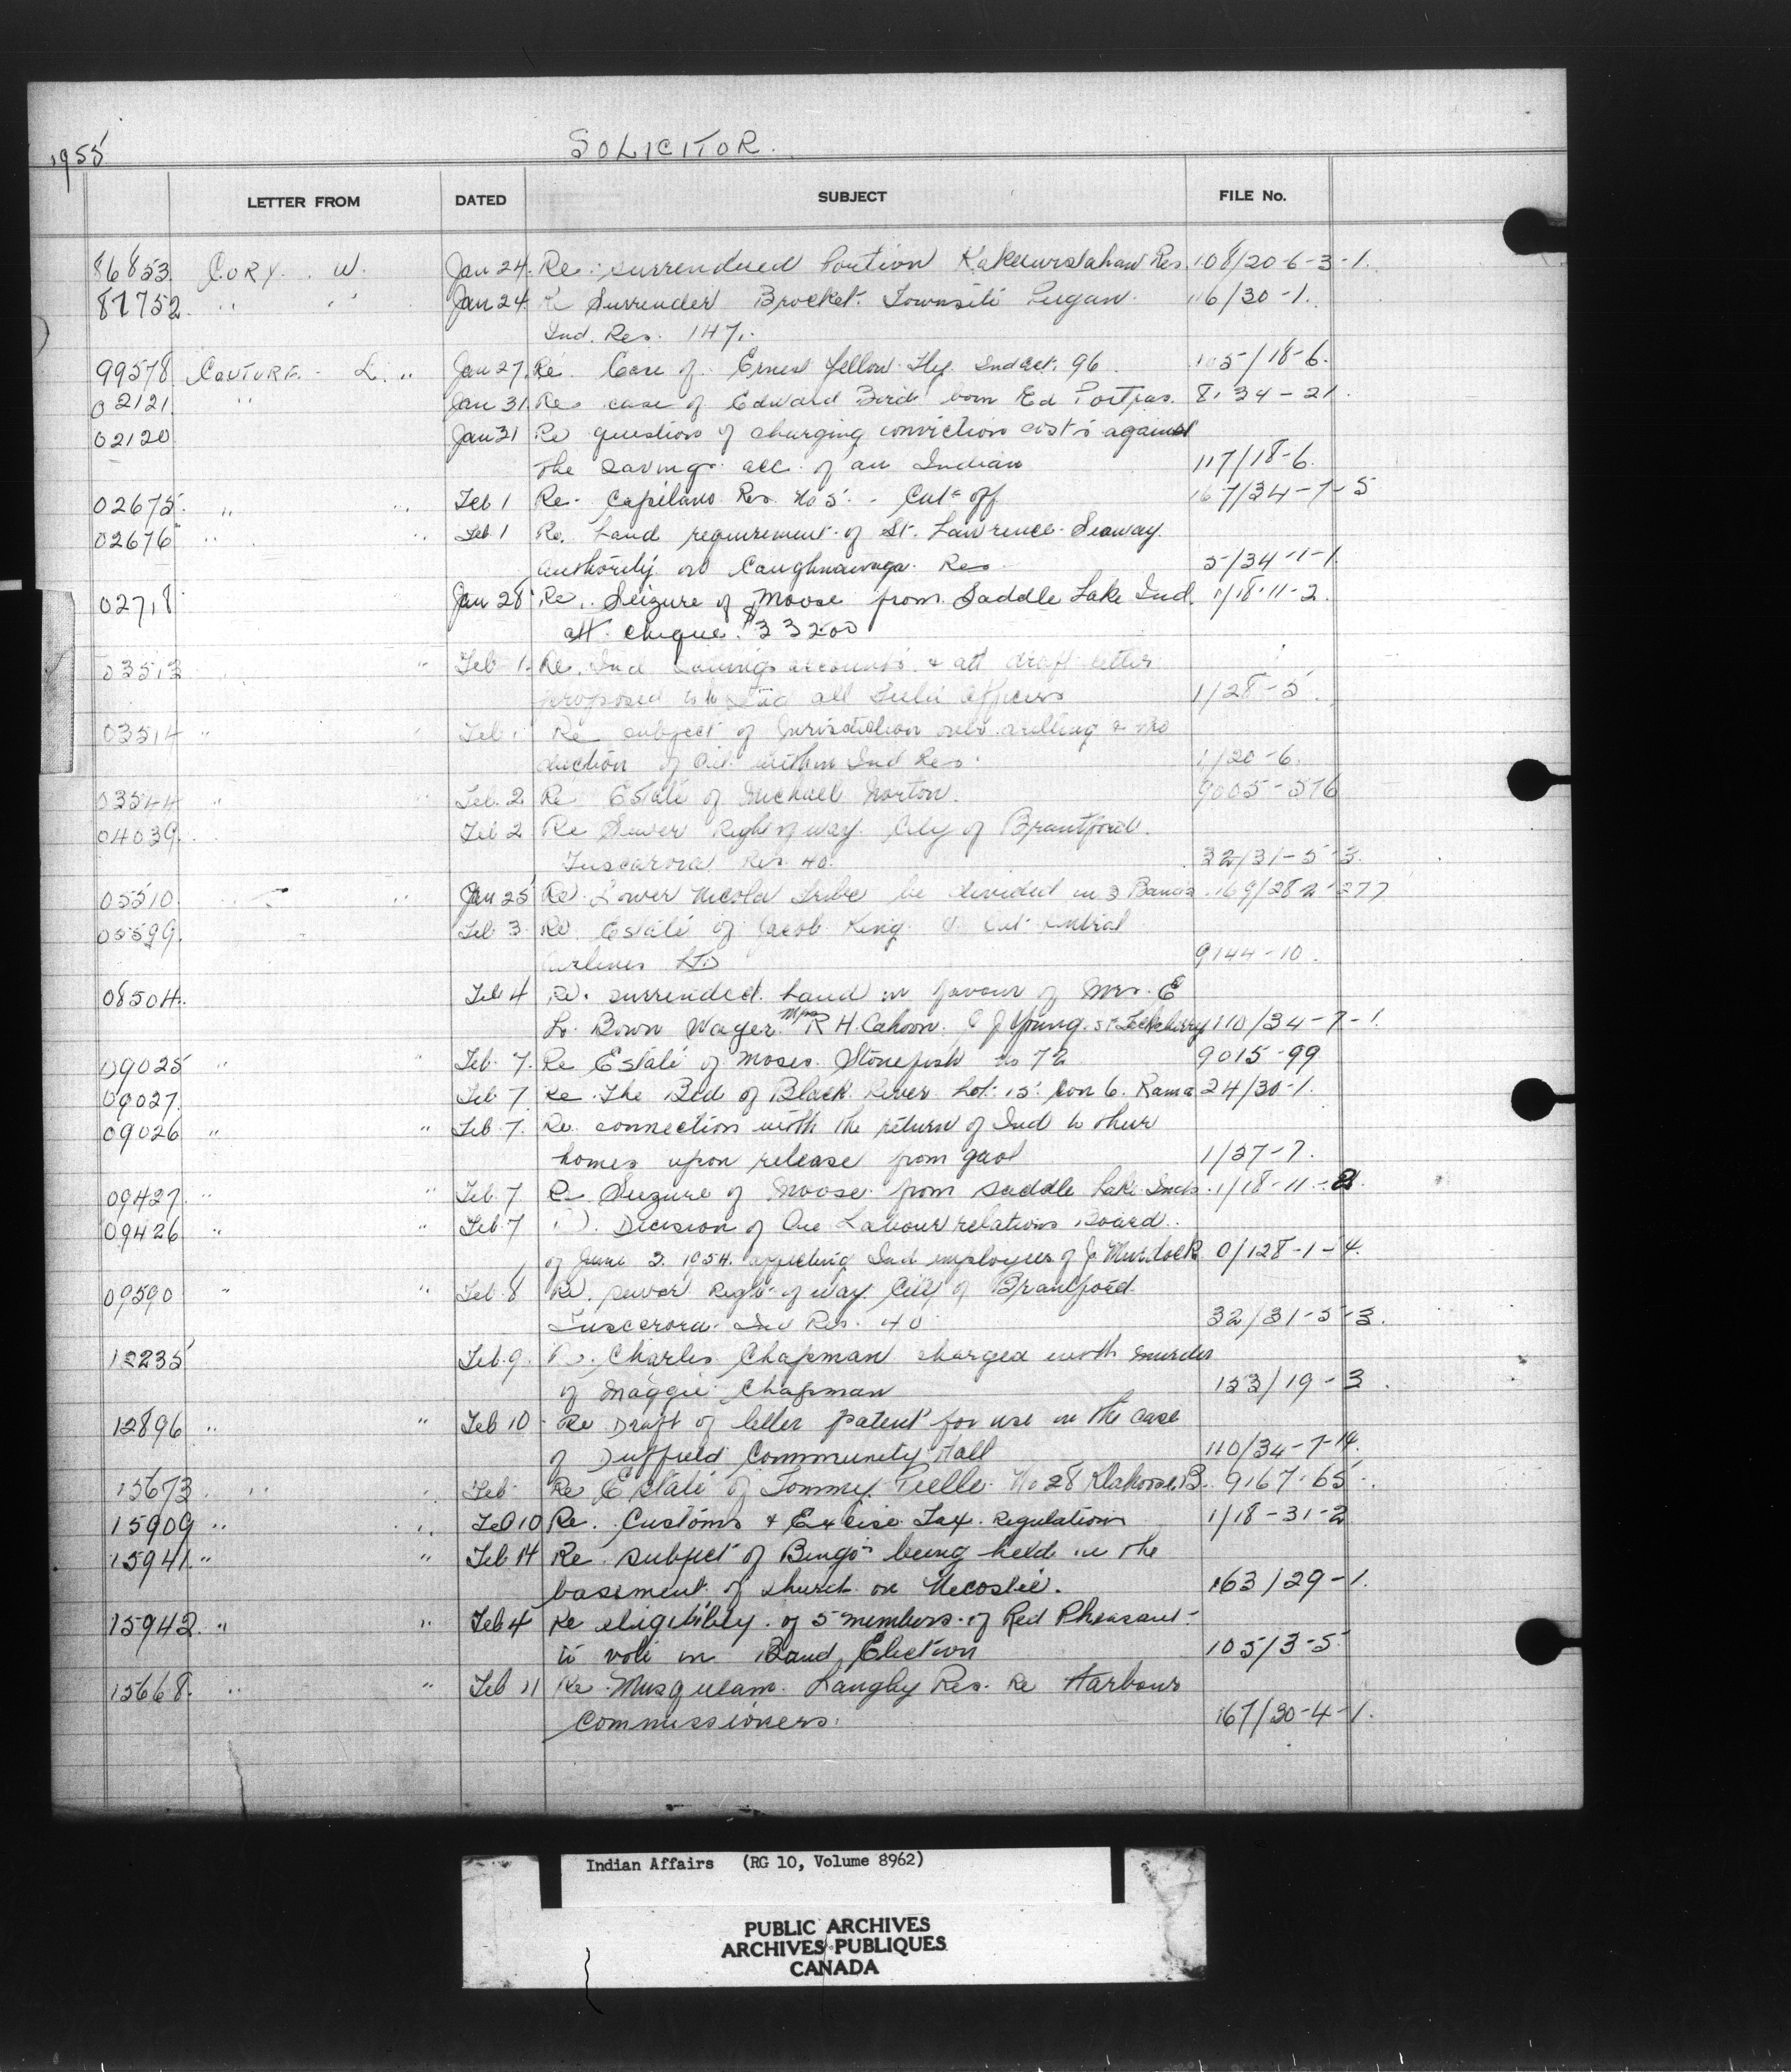 1955 SOLICITOR.
LETTER FROM DATED SUBJECT FILE No.
86853 CORY. W. Jan 24. Re: surrendered Portion Kakeewistahaw Res. 108/20-6-3-1.
87752 " " Jan 24 Re Surrender Brocket. Townsite Peigan. 116/30-1.
Ind. Res. 147.
99578 COUTURE. L. " Jan 27. Re. Case of Ernest Yellow Fly Ind act. 96 105/18-6.
02121 " Jan 31. Re case of Edward Bird born Ed 8/34-21.
02120 Jan 31 Re question of charging conviction costs against
the savings acc. of an Indian 117/18-6.
02675. " " Feb 1 Re. Capilano Res. No 5. - Cut off 167/34-7-5
02676 " " Feb 1 Re. Land requirement of St. Lawrence Seaway
authority on Caughnawaga Res 5/34-1-1.
02718 Jan 28 Re. Seizure of Moose from Saddle Lake Ind. 1/18-11-2.
att. cheque. $332.00
03513 " Feb 1. Re. Ind Savings accounts & att draft letter
proposed to be all Field Officers 1/28-5.
03514 " " Feb 1 Re subject of Jurisdiction over drilling & pro
duction of Oil within Ind Res. 1/20-6.
03544 " " Feb. 2 Re Estate of Michael Norton. 9005-576
04039. Feb 2 Re Sewer Right of way. City of Brantford.
Tuscarora Res. 40. 32/31-5-3.
05510 " " Jan 25 Re Lower Nicola Tribe be divided in 3 Bands. 169/28-2-277
05599. Feb 3. Re. Estate of Jacob King Central
Airlines LTD 9144-10.
08504. Feb 4 Re. surrended. Land in favour of Mrs. E
Lo. Bown Wager Mrs R H. Cahoon. C J Young. 110/34-7-1.
09025 " " Feb. 7. Re Estate of Moses Stonefish No 72 9015-99
09027. Feb 7. Re The Bed of Black River Lot. 15. Con 6. Rama 24/30-1.
09026 " " Feb. 7. Re. connection with the return of Ind to their
homes upon release from gaol 1/27-7.
09427. " " Feb. 7 Re Seizure of Moose from Saddle Lake Inds. 1/18-11-2.
09426 " " Feb. 7 Re. Decision of Ont Labour relations Board.
of June 2. 1954. affecting Ind employees of J. Murdock 0/128-1-4.
09590 " " Feb. 8 Re. sewer Right of way City of Brantford
Tuscarora. Ind Res. 40 32/31-5-3.
12235 Feb. 9. Re. Charles Chapman charged with murder
of Maggie Chapman 153/19-3.
12896 " " Feb 10 Re Draft of letter patent for use in the case
of Duffield Community Hall 110/34-7-14.
15673 " " Feb Re Estate of Tommy Pielle No 28 Klahoose B. 9167-65.
15909 " " Feb 10 Re. Customs & Excise Tax. Regulations 1/18-31-2
15941. " " Feb 14 Re subject of Bingos being held in the
basement of church on Necoslie. 163/29-1.
15942. " " Feb 4 Re eligibility of 5 members of Red Pheasant
to vote in Band Election 105/3-5.
15668. " " Feb 11 Re Musqueam. Langley Res. Re Harbour
Commissioners. 167/30-4-1.
Indian Affairs (RG 10, Volume 8962)
PUBLIC ARCHIVES
ARCHIVES PUBLIQUES
CANADA